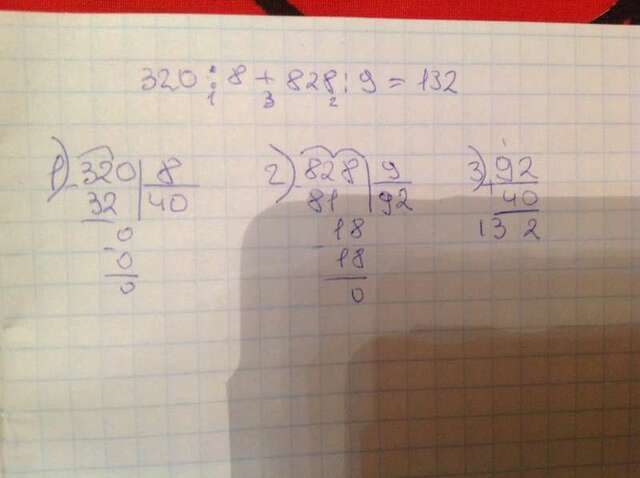 320 : 8 + 828 : 9 = 132
1 3 2
1) 320 | 8
- 32 | 40
0
- 0
0
2) 828 | 9
- 81 | 92
18
- 18
0
3) 92
+ 40
132